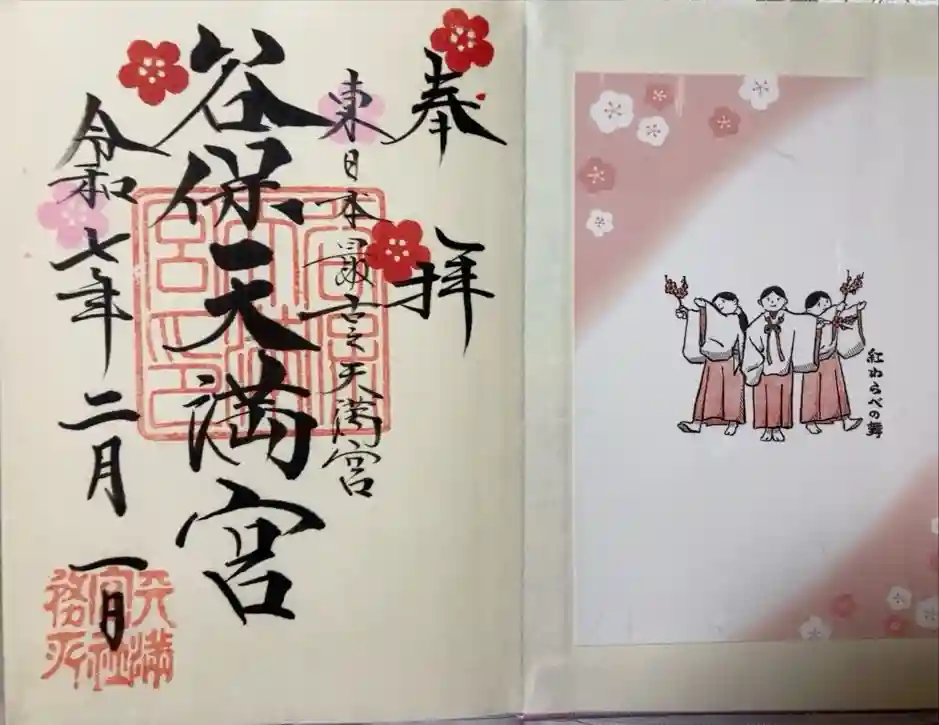 奉拝
東日本最古之天満宮
谷保天満宮
令和七年二月一日
天満宮社務所
紅わらべの舞